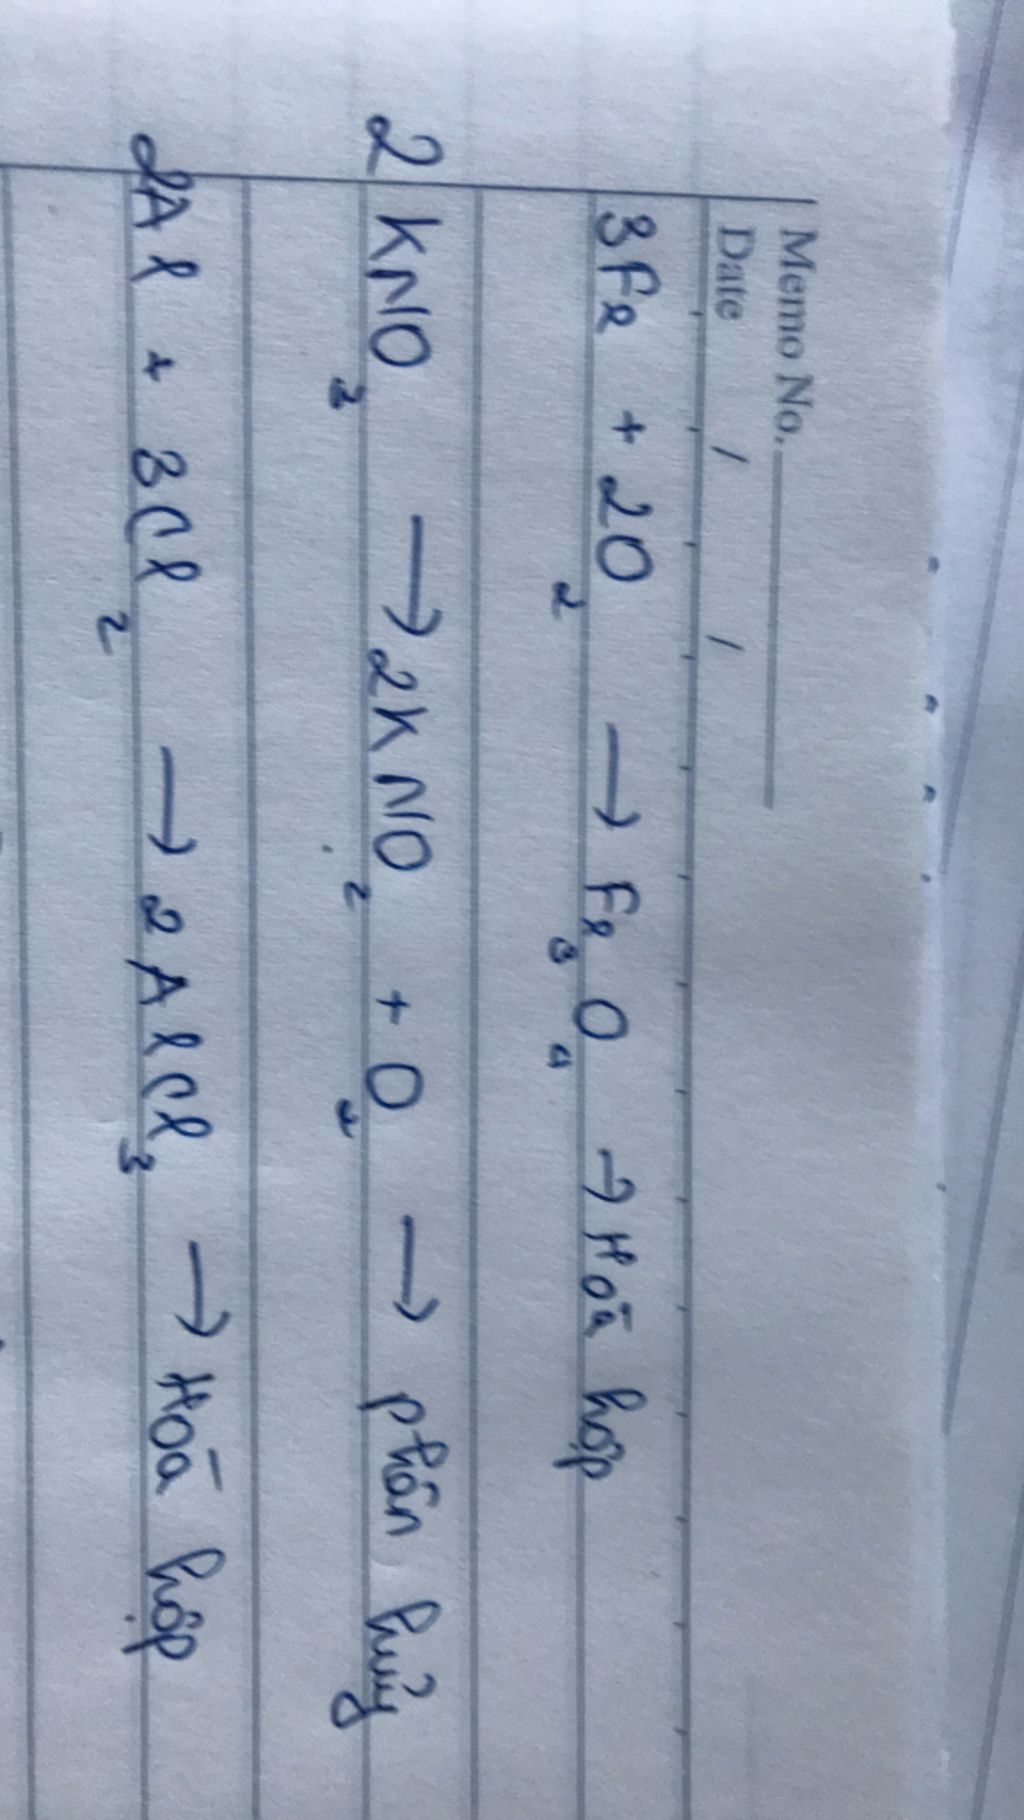 Memo No.
Date / /
3Fe + 2O₂ → Fe₃O₄ → Hoá hợp
2KNO₃ → 2KNO₂ + O₂ → phân huỷ
2Al + 3Cl₂ → 2AlCl₃ → Hoá hợp